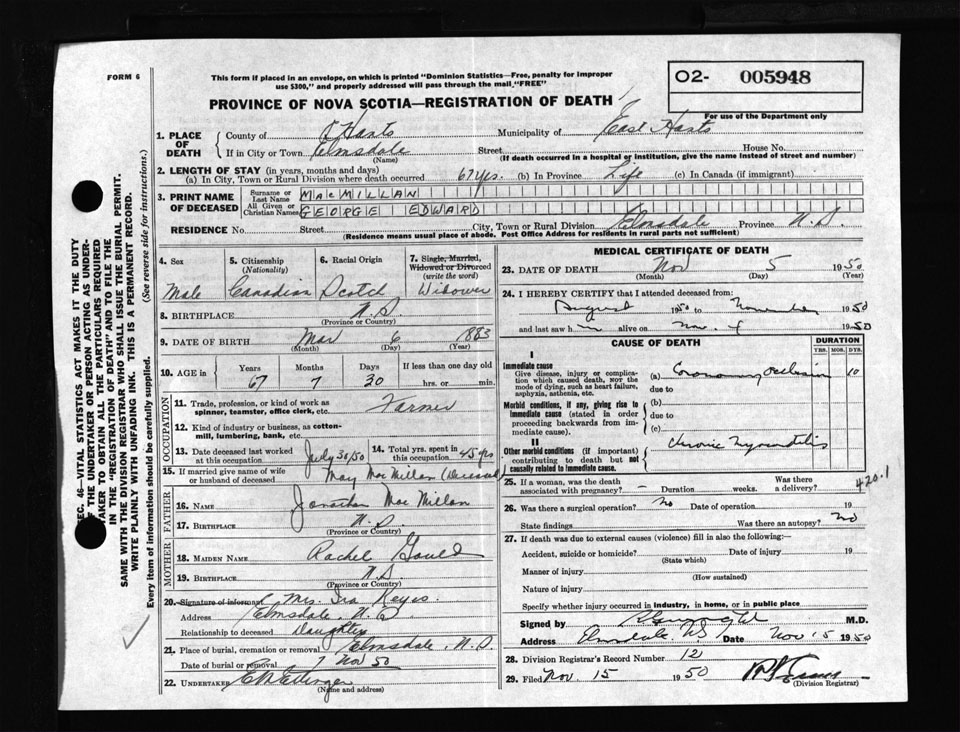 FORM 6
This form if placed in an envelope, on which is printed "Dominion Statistics—Free, penalty for improper
use $300," and properly addressed will pass through the mail, "FREE"
O2- 005948
For use of the Department only
PROVINCE OF NOVA SCOTIA—REGISTRATION OF DEATH
1. PLACE OF DEATH
County of Hants Municipality of East Hants
If in City or Town Elmsdale (Name) Street House No.
(If death occurred in a hospital or institution, give the name instead of street and number)
2. LENGTH OF STAY (in years, months and days)
(a) In City, Town or Rural Division where death occurred 67 yrs. (b) In Province Life (c) In Canada (if immigrant)
3. PRINT NAME OF DECEASED
Surname or Last Name MACMILLAN
All Given or Christian Names GEORGE EDWARD
RESIDENCE No. Street City, Town or Rural Division Elmsdale Province N.S.
(Residence means usual place of abode. Post Office Address for residents in rural parts not sufficient)
4. Sex Male
5. Citizenship (Nationality) Canadian
6. Racial Origin Scotch
7. Single, Married, Widowed or Divorced (write the word) Widower
8. BIRTHPLACE N.S.
(Province or Country)
9. DATE OF BIRTH Mar 6 1883
(Month) (Day) (Year)
10. AGE in Years 67 Months 7 Days 30 If less than one day old hrs. or min.
OCCUPATION
11. Trade, profession, or kind of work as spinner, teamster, office clerk, etc. Farmer
12. Kind of industry or business, as cotton-mill, lumbering, bank, etc.
13. Date deceased last worked at this occupation July 30/50
14. Total yrs. spent in this occupation 45 yrs
15. If married give name of wife or husband of deceased May MacMillan (Deceased)
FATHER
16. NAME Jonathan MacMillan
17. BIRTHPLACE N.S.
(Province or Country)
MOTHER
18. MAIDEN NAME Rachel Gould
19. BIRTHPLACE N.S.
(Province or Country)
20. Signature of informant Mrs. Ira Keyes
Address Elmsdale N.S.
Relationship to deceased Daughter
21. Place of burial, cremation or removal Elmsdale, N.S.
Date of burial or removal 7 Nov 50
22. UNDERTAKER Ettinger
(Name and address)
MEDICAL CERTIFICATE OF DEATH
23. DATE OF DEATH Nov 5 1950
(Month) (Day) (Year)
24. I HEREBY CERTIFY that I attended deceased from:
August 1950 to November 1950
and last saw him alive on Nov. 4 1950
CAUSE OF DEATH
DURATION
YRS. MOS. DYS.
I
Immediate cause
Give disease, injury or complication which caused death, NOT the mode of dying, such as heart failure, asphyxia, asthenia, etc.
(a) Coronary occlusion 10
due to
Morbid conditions, if any, giving rise to immediate cause (stated in order proceeding backwards from immediate cause).
(b)
due to
(c)
II
Other morbid conditions (if important) contributing to death but not causally related to immediate cause.
Chronic Myocarditis
420.1
25. If a woman, was the death associated with pregnancy? — Duration weeks. Was there a delivery?
26. Was there a surgical operation? No Date of operation 19
State findings Was there an autopsy? No
27. If death was due to external causes (violence) fill in also the following:—
Accident, suicide or homicide? Date of injury 19
(State which)
Manner of injury
(How sustained)
Nature of injury
Specify whether injury occurred in industry, in home, or in public place
Signed by M.D.
Address Elmsdale NS Date Nov 15 1950
28. Division Registrar's Record Number 12
29. Filed Nov. 15 1950
(Division Registrar)
SEC. 46—VITAL STATISTICS ACT MAKES IT THE DUTY
OF THE UNDERTAKER OR PERSON ACTING AS UNDERTAKER
TO OBTAIN ALL THE PARTICULARS REQUIRED
IN THE "REGISTRATION OF DEATH" AND TO FILE THE
SAME WITH THE DIVISION REGISTRAR WHO SHALL ISSUE THE BURIAL PERMIT.
WRITE PLAINLY WITH UNFADING INK. THIS IS A PERMANENT RECORD.
Every item of information should be carefully supplied. (See reverse side for instructions.)